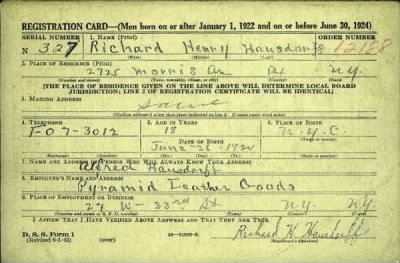 REGISTRATION CARD—(Men born on or after January 1, 1922 and on or before June 30, 1924)
SERIAL NUMBER 1. NAME (Print) ORDER NUMBER
N 327 Richard Henry Hausdorff 12188
(First) (Middle) (Last)
2. PLACE OF RESIDENCE (Print)
2725 Morris Av Bx N.Y.
(Number and street) (Town, township, village, or city) (County) (State)
[THE PLACE OF RESIDENCE GIVEN ON THE LINE ABOVE WILL DETERMINE LOCAL BOARD
JURISDICTION; LINE 2 OF REGISTRATION CERTIFICATE WILL BE IDENTICAL]
3. MAILING ADDRESS
Same
4. TELEPHONE 5. AGE IN YEARS 6. PLACE OF BIRTH
FO 7-3012 18 N.Y.C.
DATE OF BIRTH
June 26 1924
7. NAME AND ADDRESS OF PERSON WHO WILL ALWAYS KNOW YOUR ADDRESS
Alfred Hausdorff
8. EMPLOYER'S NAME AND ADDRESS
Pyramid Leather Goods
9. PLACE OF EMPLOYMENT OR BUSINESS
27 W- 33rd St N.Y. N.Y.
I AFFIRM THAT I HAVE VERIFIED ABOVE ANSWERS AND THAT THEY ARE TRUE.
D. S. S. Form 1
(Revised 6-1-42) (over)
Richard H. Hausdorff
(Registrant's signature)